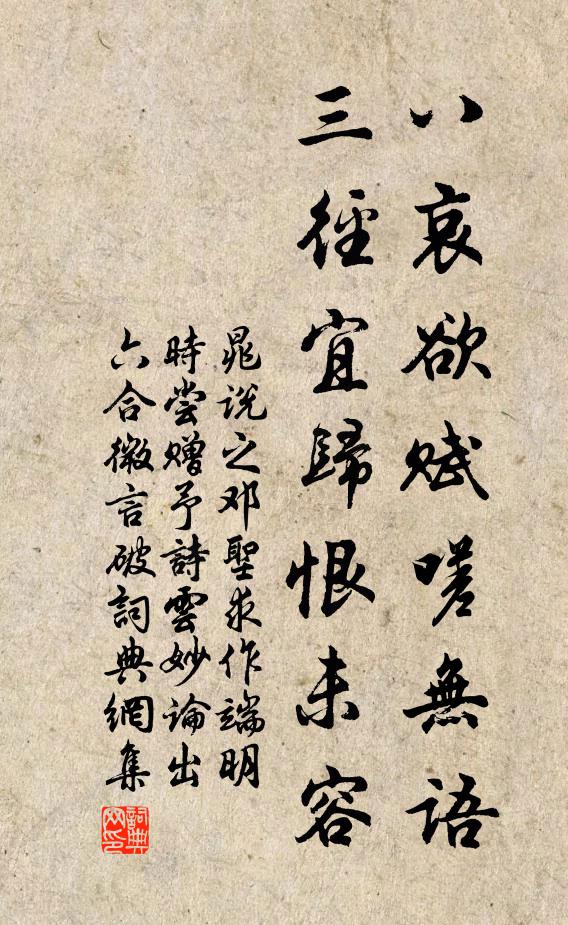 八哀欲赋嗟無語
三徑宜歸恨未容
晁说之邓聖求作端明
時尝赠予詩雲妙論出
六合微言破詞典網集
詞典网印